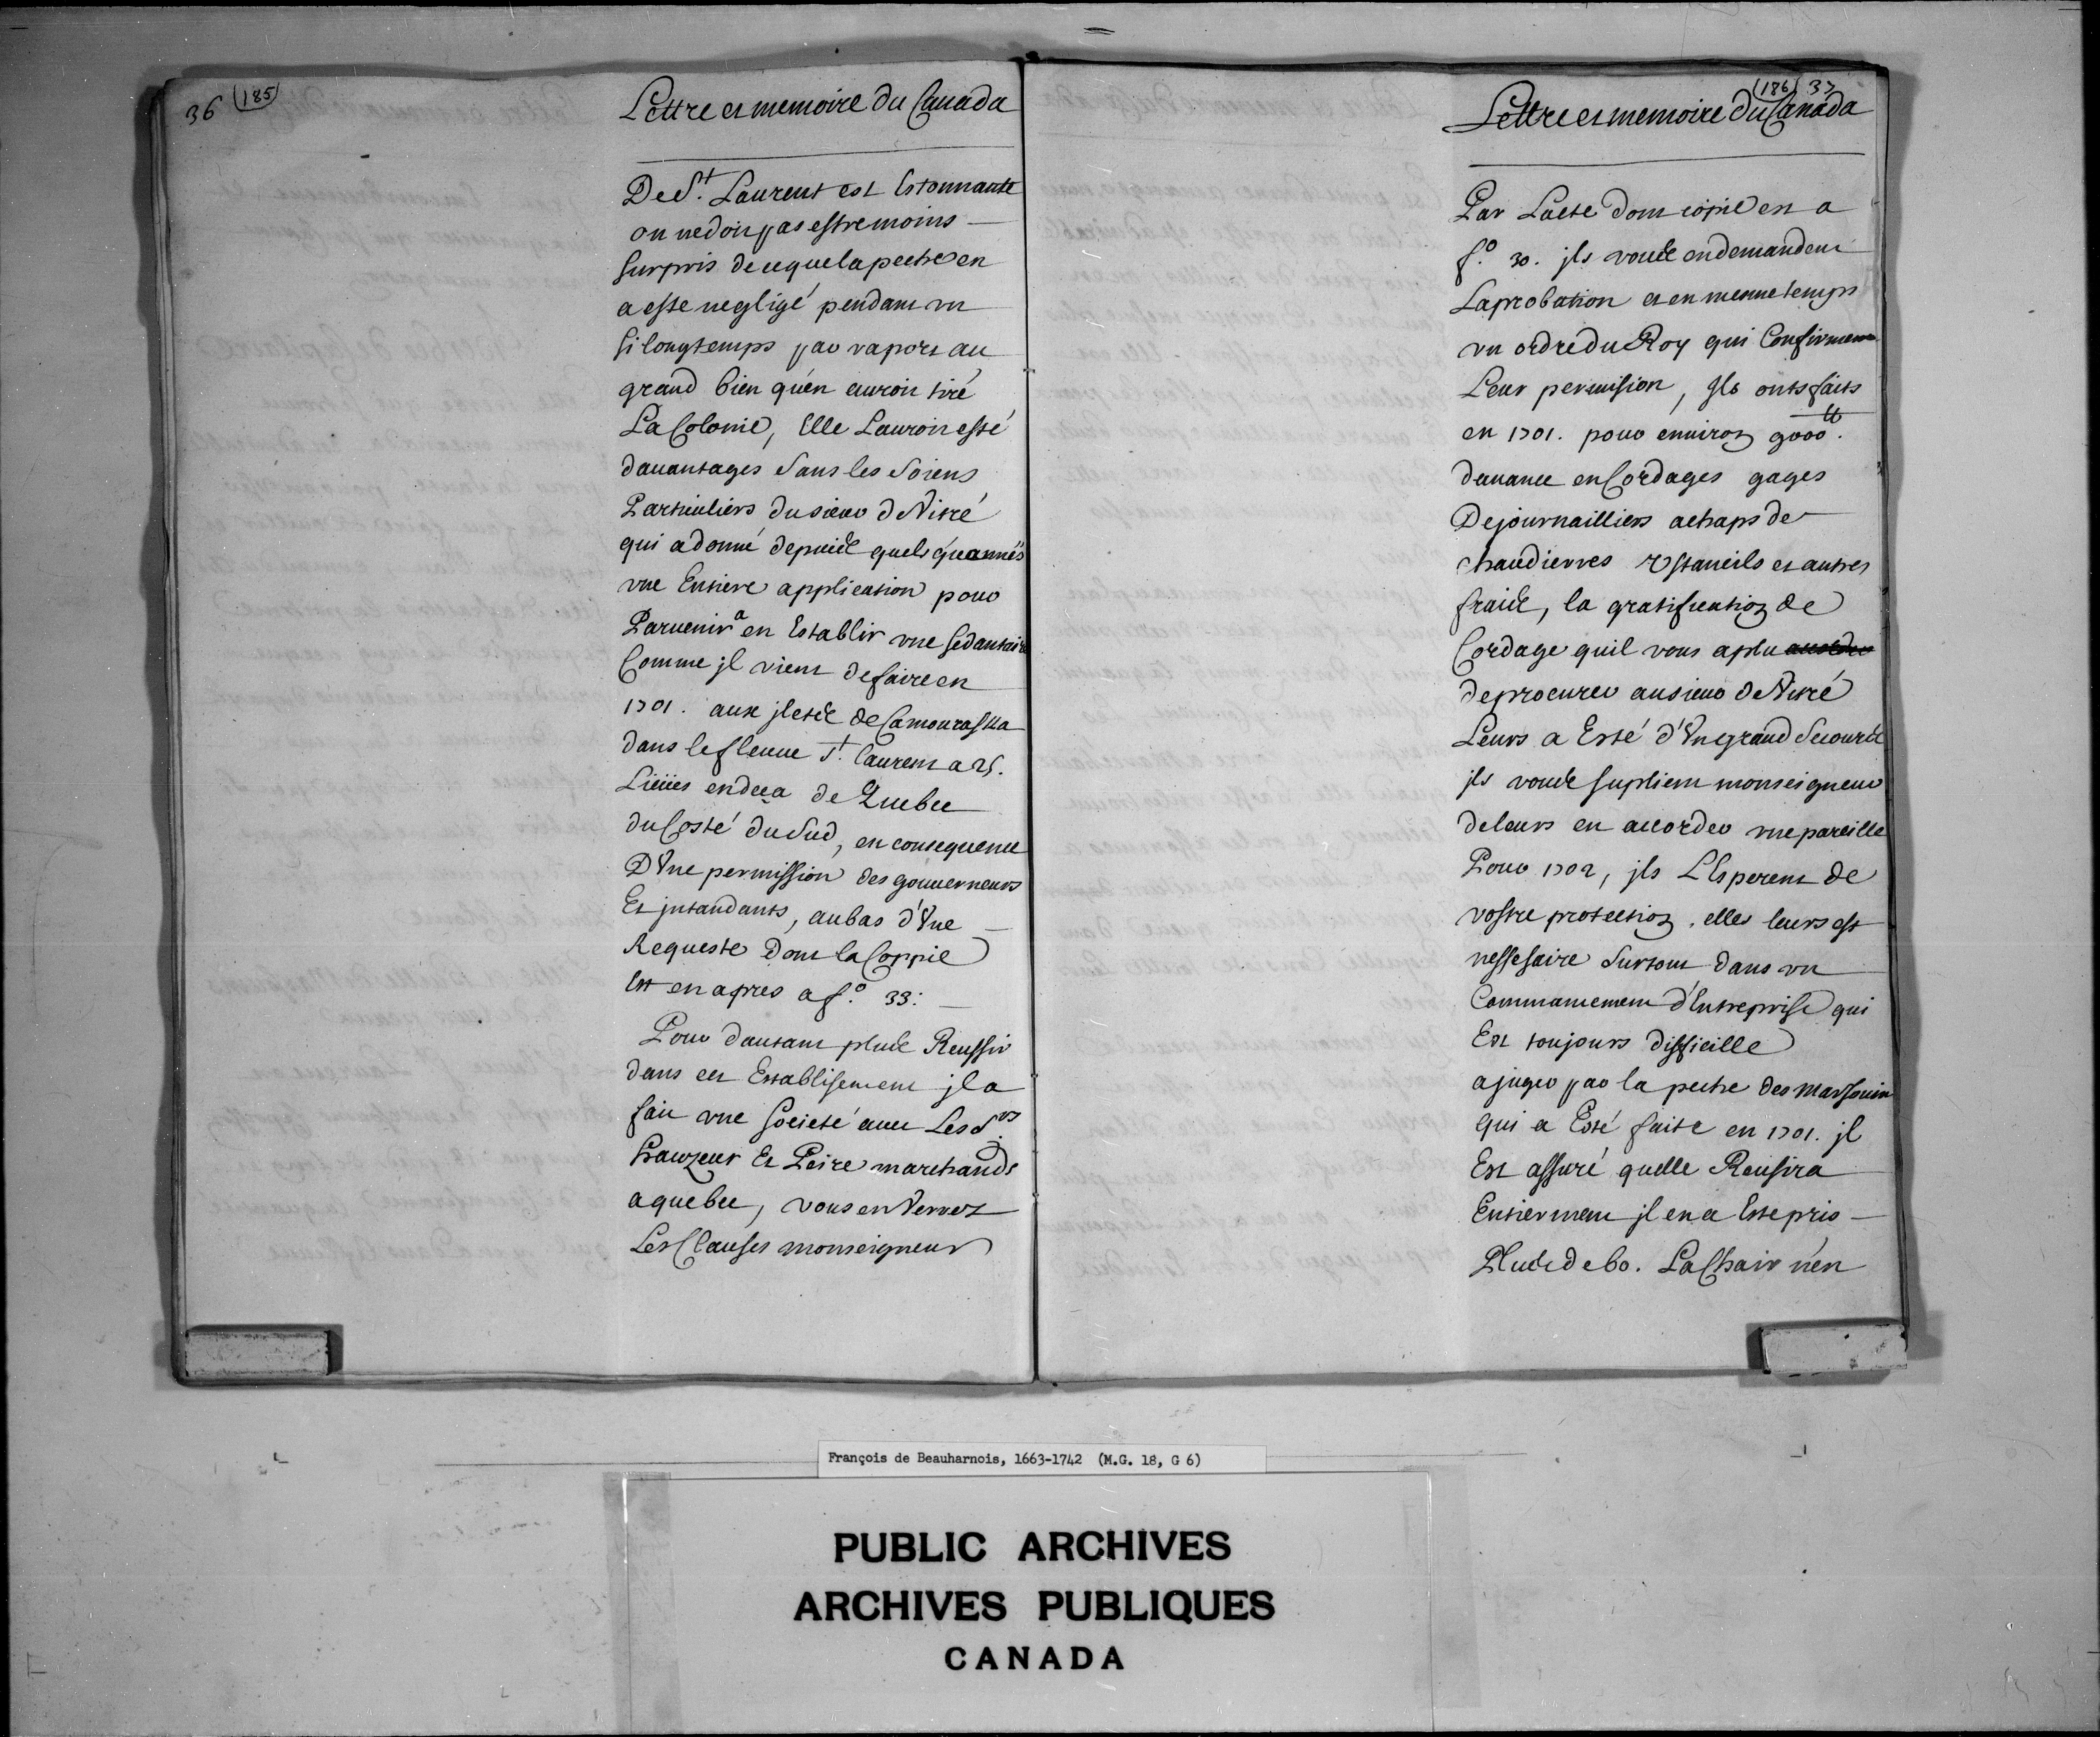 36 (185)
Lettre et memoire du Canada
De St. Laurent est Estonnante
on ne doit pas estre moins
surpris de ceque la peche en
a esté negligé pendant vn
si longtemps par raport au
grand bien qu'en auroit tiré
La Colonie, Elle L'auroit esté
dauantages sans les soiens
Particuliers du sieur de Vitré
qui a donné depuis quelqu'années
vne Entiere application pour
Paruenir a en Establir vne sedantaire
Comme jl vient de faire en
1701. aux jsles de Camouraska
dans le fleuue St. Laurent a 25.
Lieües endeça de Quebec
du Costé du Sud, en consequence
D'Vne permission des gouuerneurs
Et jntandants, au bas d'Vne
Requeste Dont la Coppie
Est en apres a fo. 33.
Pour dautant plus Reussir
dans cet Establisement jl a
fait vne Societé auec Les Srs.
hauzeur Et Peire marchands
a quebec, vous en Verrez
Les Clauses monseigneur
(186) 37
Lettre et memoire du Canada
Par L'acte dont copie en a
fo. 30. jls vous en demandent
Laprobation et en mesme temps
vn ordre du Roy qui Confirment
Leur permision, Ils onts faits
en 1701. pour enuiron 9000tt.
dauance en Cordages gages
De journailliers achaps de
chaudierres Vstancils et autres
fraix, la gratification de
Cordage quil vous a plu accorder
de procurer au sieur de Vitré
Leurs a Esté d'Vn grand Secours
jls vous suplient monseigneur
de leurs en accorder vne pareille
Pour 1702, jls L'Esperent de
vostre protection. elles leurs est
nessesaire Surtout dans vn
Commancement d'Entreprise qui
Est toujours difficille
a juger par la peche des Marsouin
qui a Esté faite en 1701. jl
Est assuré quelle Reusira
Entierment jl en a Esté pris
Plus de 60. La Chair n'en
François de Beauharnois, 1663-1742 (M.G. 18, G 6)
PUBLIC ARCHIVES
ARCHIVES PUBLIQUES
CANADA